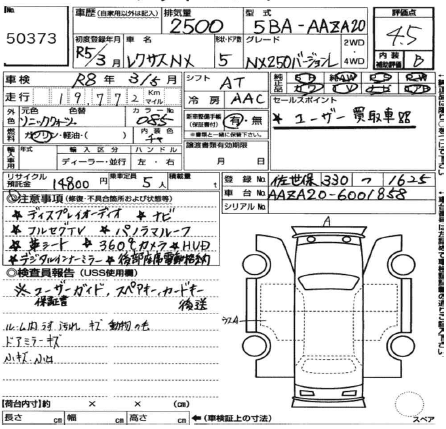 No.
50373
車歴(自家用以外は記入) 排気量 型式 評価点
2500 5BA-AAZA20 4.5
初度登録年月 車名 ドア数 グレード 2WD 4WD 内装補助評価
R5/3月 レクサスNX 5 NX250バージョンL B
車検 R8年3/5月 シフト AT
走行 19,772 Km マイル 冷房 AAC
セールスポイント
★ユーザー買取車
外色 元色 色替 カラーNo.
ソニッククォーツ 085
新車整備手帳(保証書付) 有・無
※書類と一緒に保管下さい。
燃料 ガソリン・軽油・( ) 内装色 チャ
譲渡書類有効期限
月 日
輸入車用 年式 輸入区分 ハンドル
ディーラー・並行 左・右
リサイクル預託金 14800円 乗車定員 5人 積載量 t
登録No. 佐世保330 つ 1625
車台No. AAZA20-6001858
シリアルNo.
◎注意事項(修復・不具合箇所および状態等)
★ディスプレイオーディオ ★ナビ
★フルセグTV ★パノラマルーフ
★革シート ★360°カメラ★HUD
★デジタルインナーミラー ★後部座席電動格納
◎検査員報告(USS使用欄)
※ユーザーガイド、スペアキー、カードキー
保証書 後送
ルーム内 汚れ キズ 動物の毛
ドアミラーキズ
小キズ・小凹
A
【荷台内寸】約 × × (cm)
長さ cm 幅 cm 高さ cm ←(車検証上の寸法)
スペア